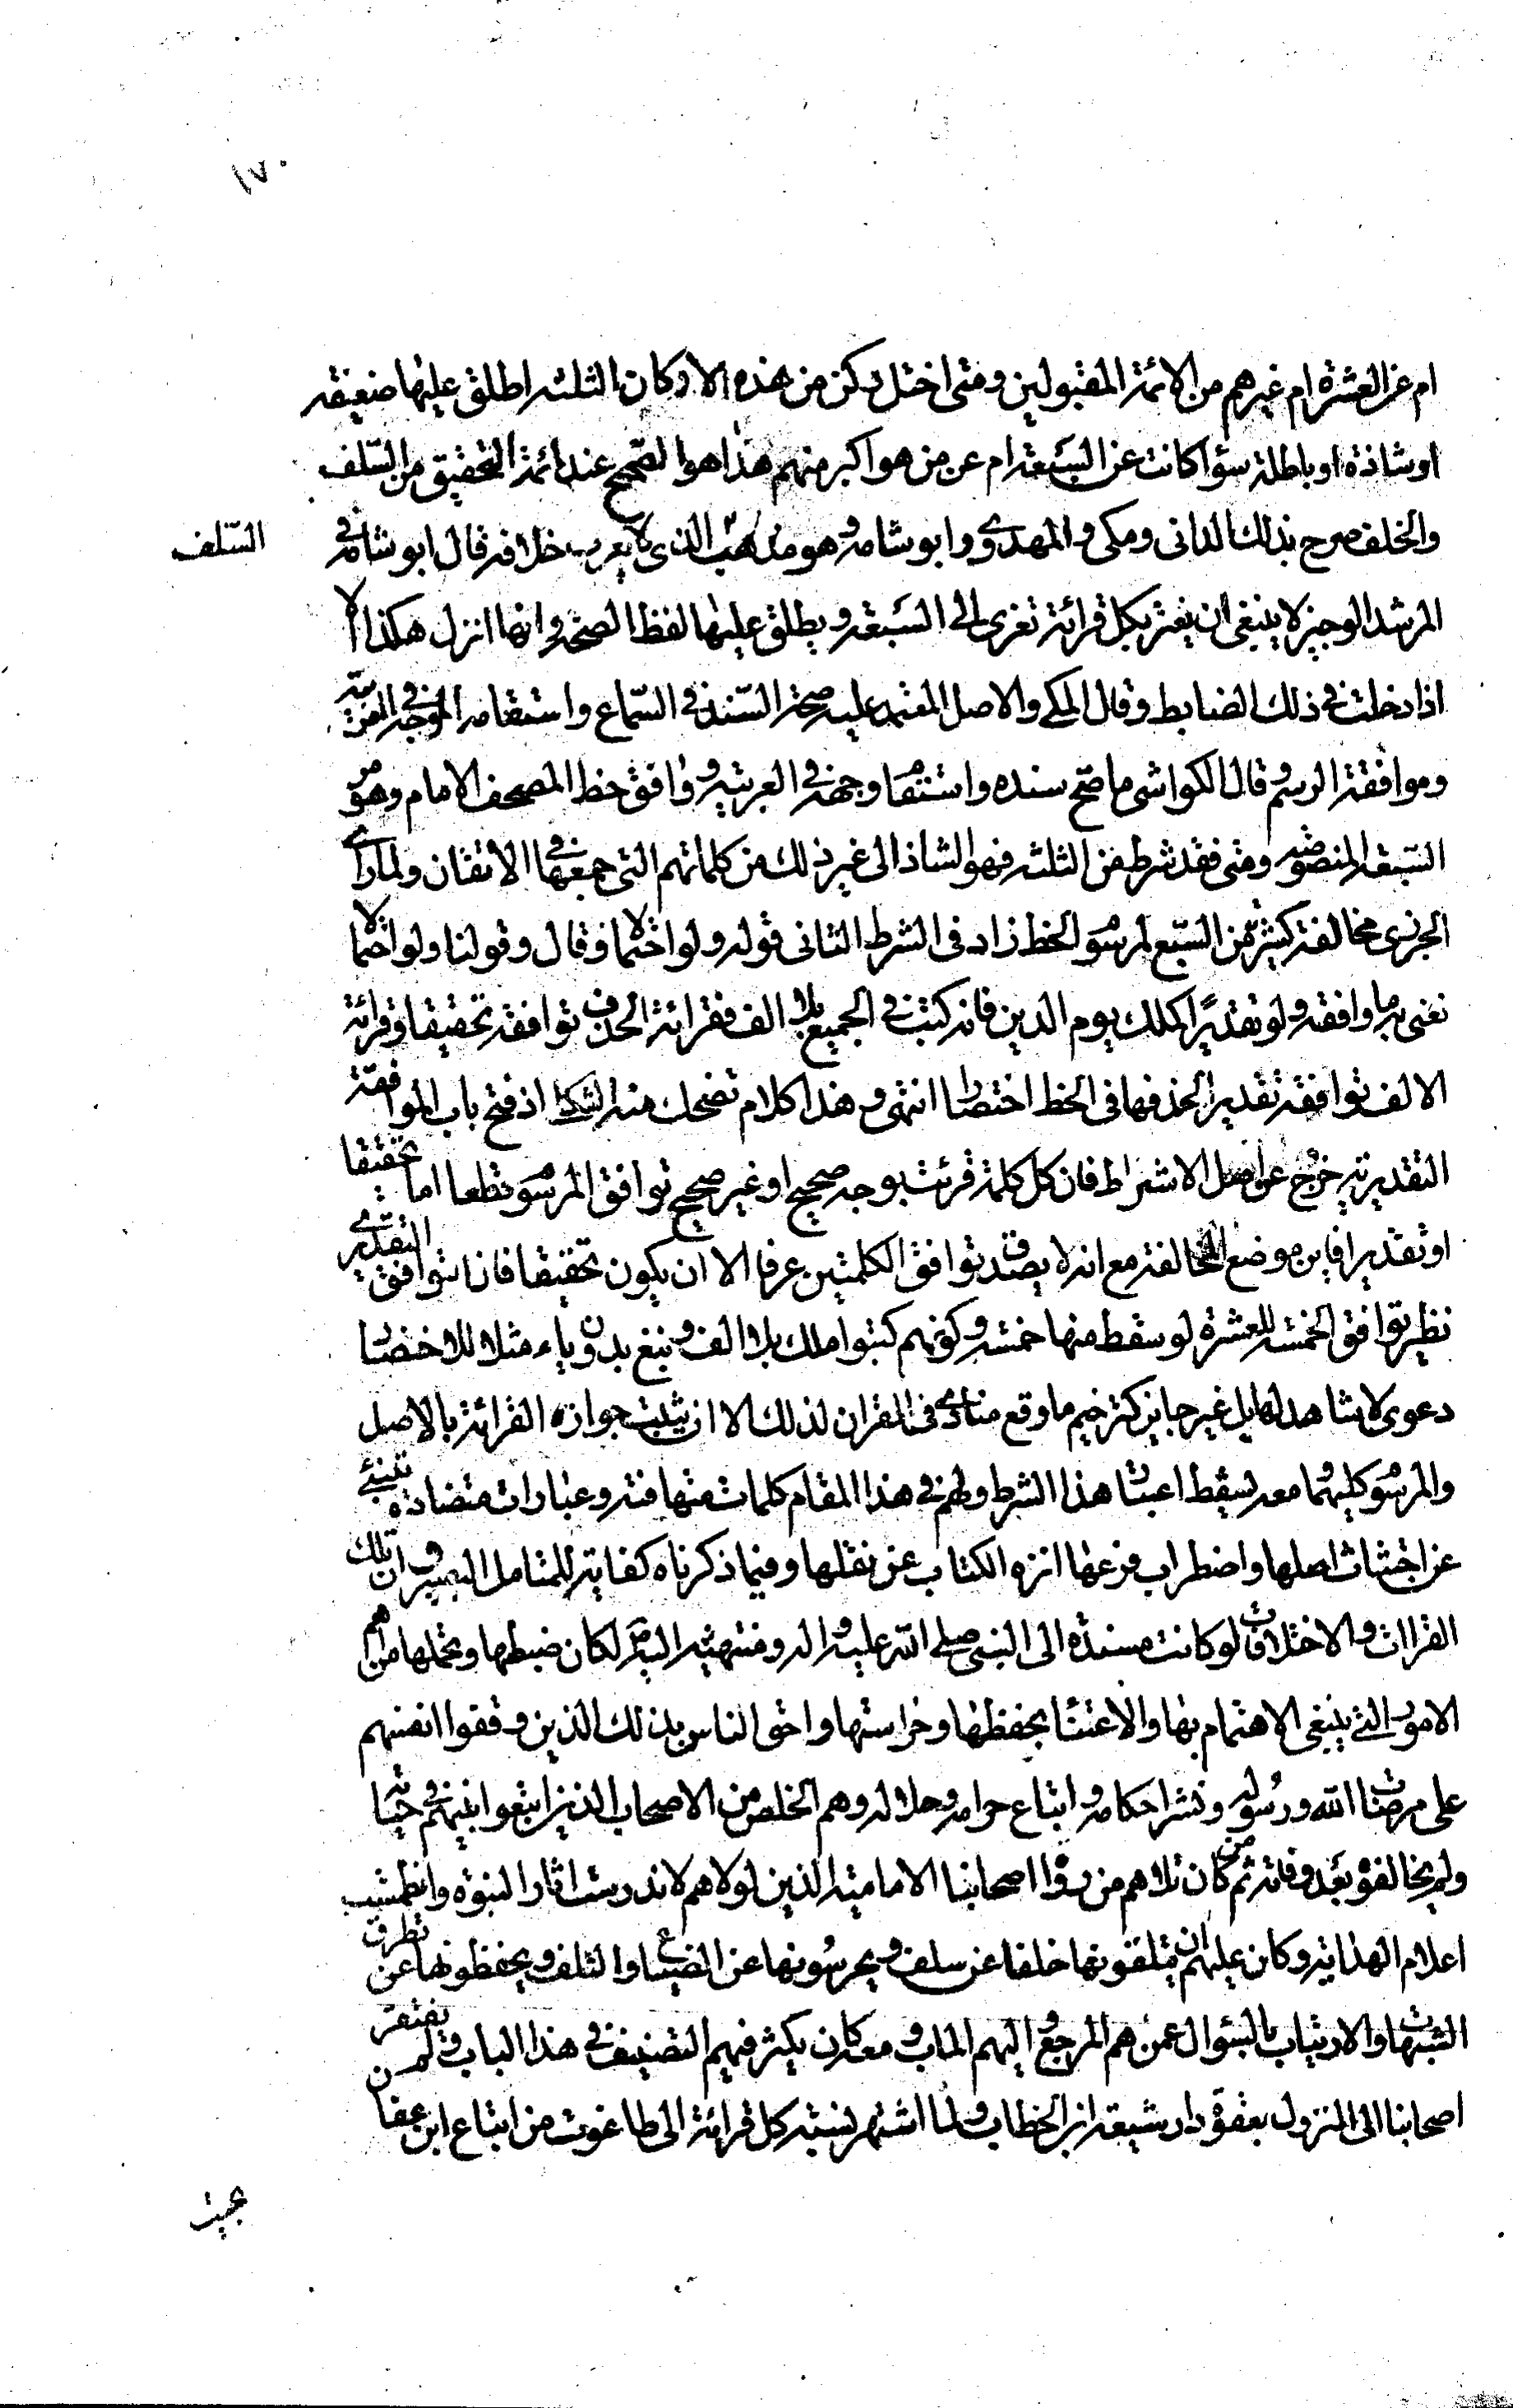 ١٧٠
ام عن العشرة ام غيرهم من الائمة المقبولين ومتى اختل ركن من هذه الاركان الثلثه اطلق عليها ضعيفه
او شاذة او باطلة سواء كانت عن السبعة ام عن من هو اكبر منهم هذا هو الصحيح عند ائمة التحقيق من السلف
والخلف صرح بذلك الدانى ومكى والمهدوى وابو شامه وهو مذهب السلف الذى لا يعرف خلافه قال ابو شامه فى
السلف
المرشد الوجيز لا ينبغى ان يغتر بكل قرائة تعزى الى السبعة ويطلق عليها لفظ الصحة وانها انزل هكذا الا
اذا دخلت فى ذلك الضابط وقال المكى والاصل المعتمد عليه صحة السند فى السماع واستقامه الوجه فى العربية
وموافقة الرسم وقال الكواشى ما صح سنده واستقام وجهه فى العربيه ووافق خط المصحف الامام وهو من
السبعة المنصوصه ومتى فقد شرط من الثلثه فهو الشاذ الى غير ذلك من كلماتهم التى جمعها فى الاتقان ولما راى
الجزرى مخالفة كثير من السبع لمرسوم الخط زاد فى الشرط الثانى قوله ولو احتمالا وقال وقولنا ولو احتمالا
نعنى به ما وافقه ولو تقديرا كملك يوم الدين فانه كتب فى الجميع بلا الف فقرائة الحذف توافقه تحقيقا وقرائة
الالف توافقه تقديرا لحذفها فى الخط اختصارا انتهى وهذا كلام تضحك منه الثكلى اذ فتح باب الموافقة
التقديرية خروج عن اصل الاشتراط فان كل كلمة قرئت بوجه صحيح او غير صحيح توافق المرسوم قطعا اما تحقيقا
او تقديرا فاين موضع المخالفة مع انه لا يصدق توافق الكلمتين عرفا الا ان يكون تحقيقا فان التوافق التقديرى
نظير توافق الخمسة للعشرة لو سقط منها خمسة وكونهم كتبوا ملك بلا الف ونبغ بدون ياء مثلا للاختصار
دعوى لا شاهد لها بل غير جايز كترخيم ما وقع منادى فى القران لذلك الا ان يثبت جوازه القرائة بالاصل
والمرسوم كليهما معه يسقط اعتبار هذا الشرط ولهم فى هذا المقام كلمات متهافتة وعبارات متضادة تنبئ
عن اجتثاث اصلها واضطراب فرعها انزه الكتاب عن نقلها وفيما ذكرناه كفاية للمتامل البصير وان تلك
القراات والاختلافات لو كانت مسندة الى النبى صلى الله عليه واله ومنتهية اليه لكان ضبطها وتحملها من اهم
الامور التى ينبغى الاهتمام بها والاعتناء بحفظها وحراستها واحق الناس بذلك الذين وقفوا انفسهم
على مرضات الله ورسوله ونشر احكامه واتباع حرامه وحلاله وهم الخلص من الاصحاب الذين اتبعوا نبيهم فى حياته
ولم يخالفوه بعد وفاته ثم من كان تلاهم من رواة اصحابنا الامامية الذين لولاهم لاندرست اثار النبوة وانطمست
اعلام الهداية وكان عليهم ان يتلقونها خلفا عن سلف ويحرسونها عن الضياع والتلف ويحفظونها عن تطرق
الشبهات والارتياب بالسؤال عمن هم المرجع واليهم الماب ومعه كان يكثر فيهم التصنيف فى هذا الباب ولم يفتقر
اصحابنا الى النزول بعقوة دار شيعة ابن الخطاب ولما اشتهر نسبة كل قرائة الى طاغوت من اتباع ابن عفان